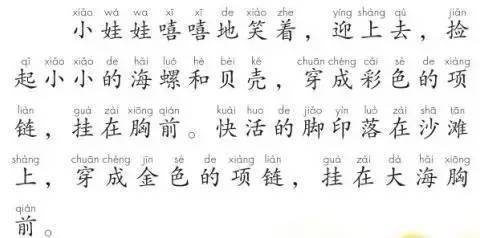 xiǎo wá wa xī xī de xiào zhe yíng shàng qù jiǎn
小娃娃嘻嘻地笑着，迎上去，捡
qǐ xiǎo xiǎo de hǎi luó hé bèi ké chuān chéng cǎi sè de xiàng
起小小的海螺和贝壳，穿成彩色的项
liàn guà zài xiōng qián kuài huo de jiǎo yìn luò zài shā tān
链，挂在胸前。快活的脚印落在沙滩
shàng chuān chéng jīn sè de xiàng liàn guà zài dà hǎi xiōng
上，穿成金色的项链，挂在大海胸
qián
前。